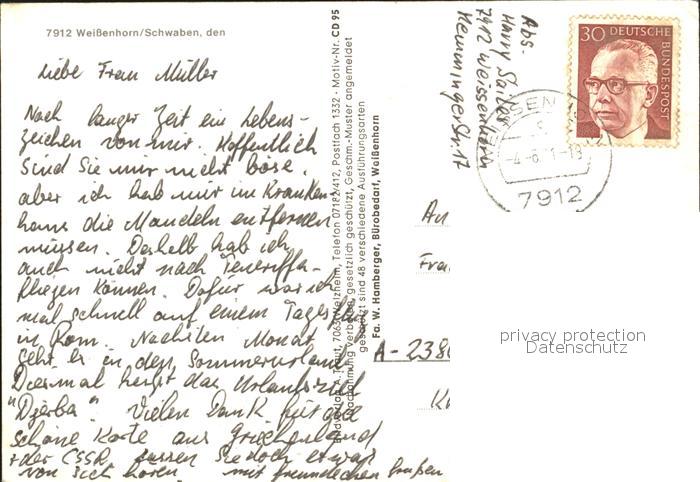 7912 Weißenhorn/Schwaben, den
Liebe Frau Müller
Nach langer Zeit ein Lebens-
zeichen von mir. Hoffentlich
sind Sie mir nicht böse,
aber ich hab mir im Kranken-
haus die Mandeln entfernen
müssen. Deshalb hab ich
auch nicht nach Teneriffa-
fliegen können. Dafür war ich
mal schnell auf einem Tagesflug
in Rom. Nächsten Monat
geht es in den Sommerurlaub
Diesmal heißt das Urlaubsziel
"Djerba". Vielen Dank für die
schöne Karte aus Griechenland
+ der CSSR. Lassen Sie doch etwas
von sich hören. mit freundlichen Grüßen
A. 7063 Welzheim, Telefon 07182/412, Postfach 1332 · Motiv-Nr. CD 95
Nachahmung verboten, gesetzlich geschützt, Geschm.-Muster angemeldet
geschützt sind 48 verschiedene Ausführungsarten
Fa. W. Hamberger, Bürobedarf, Weißenhorn
Abs.
Harry
7912 Weissenhorn
Kemmingerstr. 17
30 DEUTSCHE
BUNDESPOST
7912
An
Fra
A-238
privacy protection
Datenschutz